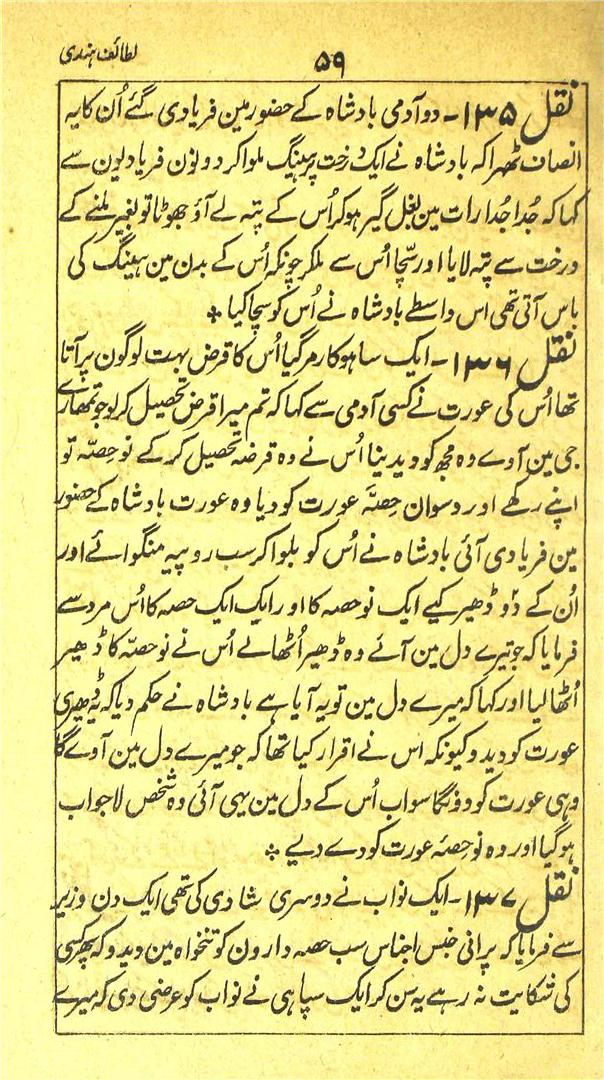 لطائف ہندی
۵۹
نقل ۱۳۵- دو آدمی بادشاہ کے حضور مین فریادی گئے اُن کا یہ
انصاف ٹھہرا کہ بادشاہ نے ایک درخت پر ہینگ ملوا کر دونون فریادیون سے
کہا کہ جُدا جُدا رات مین بغل گیر ہو کر اُس کے پتہ لے آؤ جھوٹا تو بغیر ملنے کے
درخت سے پتہ لایا اور سچّا اُس سے ملکر چونکہ اُس کے بدن مین ہینگ کی
باس آتی تھی اس واسطے بادشاہ نے اُس کو سچا کیا ❊
نقل ۱۳۶- ایک ساہوکار مر گیا اُس کا قرض بہت لوگون پر آتا
تھا اُس کی عورت نے کسی آدمی سے کہا کہ تم میرا قرض تحصیل کر لو جو تمھارے
جی مین آوے وہ مجھ کو دیدینا اُس نے وہ قرضہ تحصیل کر کے نو حِصّہ تو
اپنے رکھے اور دسوان حِصّہ عورت کو دیا وہ عورت بادشاہ کے حضور
مین فریادی آئی بادشاہ نے اُس کو بلوا کر سب روپیہ منگوائے اور
اُن کے دو ڈھیر کیے ایک نو حصہ کا اور ایک ایک حصہ کا اُس مرد سے
فرمایا کہ جو تیرے دل مین آئے وہ ڈھیر اُٹھا لے اُس نے نو حصّہ کا ڈھیر
اُٹھا لیا اور کہا کہ میرے دل مین تو یہ آیا ہے بادشاہ نے حکم دیا کہ یہ ڈھیری
عورت کو دیدو کیونکہ اس نے اقرار کیا تھا کہ جو میرے دل مین آوے گا
وہی عورت کو دونگا سو اب اُس کے دل مین یہی آئی وہ شخص لاجواب
ہو گیا اور وہ نو حِصّہ عورت کو دے دیے ❊
نقل ۱۳۷- ایک نواب نے دوسری شادی کی تھی ایک دن وزیر
سے فرمایا کہ پرانی جنس اجناس سب حصہ دارون کو تنخواہ مین دیدو کہ پھر کسی
کی شکایت نہ رہے یہ سن کر ایک سپاہی نے نواب کو عرضی دی کہ میرے